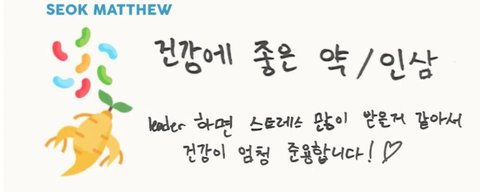 SEOK MATTHEW
건강에 좋은 약 / 인삼
leader 하면 스트레스 많이 받을거 같아서
건강이 엄청 준용합니다! ♡